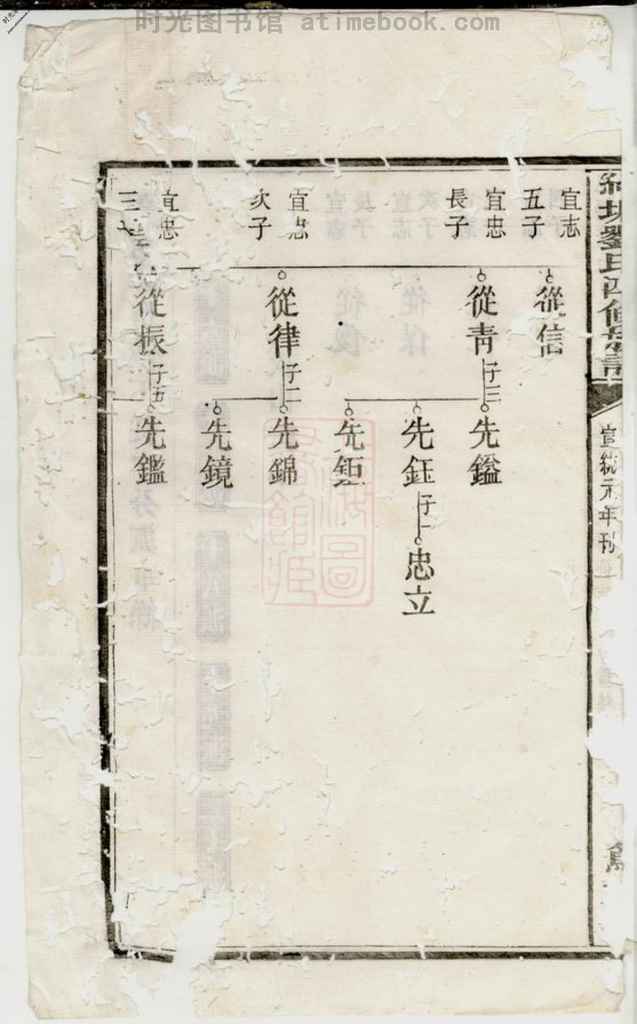 时光图书馆 atimebook.com
劉氏四修
宣統元年刊
宜志
五子
從信
宜忠
長子
從青
子三
先鎰
先鈺
子一
忠立
先鉅
宜忠
次子
從律
子二
先錦
先鏡
宜忠
三
從振
子五
先鑑